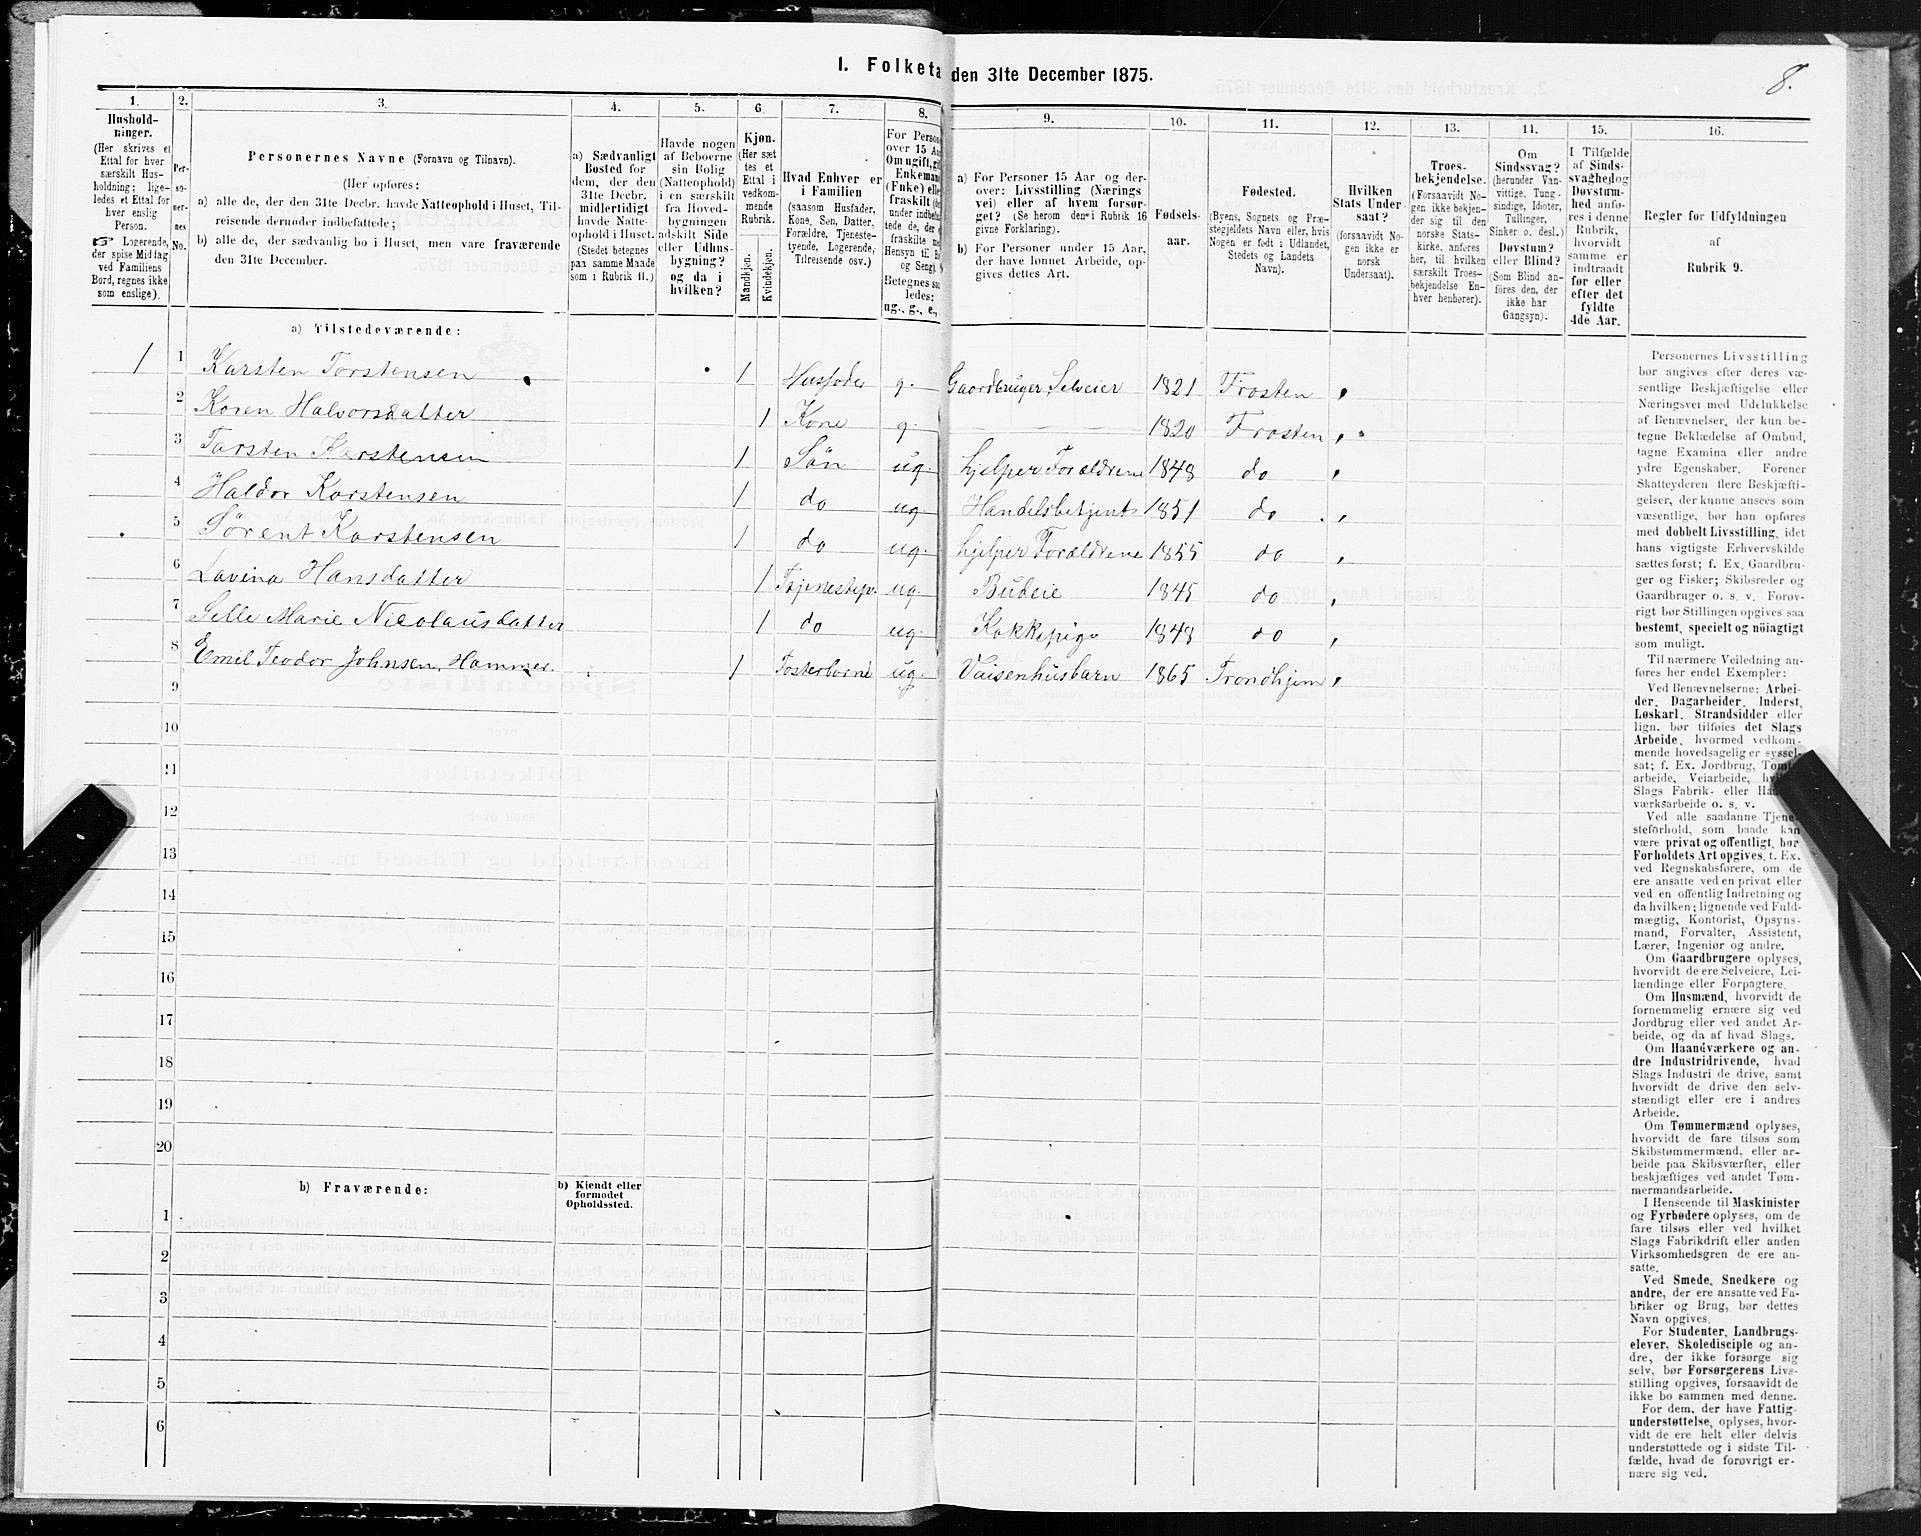 I. Folketa den 31te December 1875.
8.
1.
Hushold-
ninger.
(Her skrives et
Ettal for hver
særskilt Hus-
holdning; lige-
ledes et Ettal for
hver enslig
Person.
☞ Logerende,
der spise Middag
ved Familiens
Bord, regnes ikke
som enslige).
2.
Per-
so-
ner-
nes
No.
3.
Personernes Navne (Fornavn og Tilnavn).
(Her opføres:
a) alle de, der den 31te Decbr. havde Natteophold i Huset, Til-
reisende derunder indbefattede;
b) alle de, der sædvanlig bo i Huset, men vare fraværende
den 31te December.
4.
a) Sædvanligt
Bosted for
dem, der den
31te Decbr.
midlertidigt
havde Natte-
ophold i Huset.
(Stedet betegnes
paa samme Maade
som i Rubrik 11.)
5.
Havde nogen
af Beboerne
sin Bolig
(Natteophold)
i en særskilt
fra Hoved-
bygningen
adskilt Side
eller Udhus-
bygning?
og da i
hvilken?
6.
Kjøn.
(Her sæt
tes et
Ettal i
vedkom-
mende
Rubrik.
Mandkjøn.
Kvindekjøn.
7.
Hvad Enhver er
i Familien
(saasom Husfader,
Kone, Søn, Datter,
Forældre, Tjeneste-
tyende, Logerende,
Tilreisende osv.)
8.
For Person
over 15 Aa
Om ugift, gif
Enkeman
(Fuke) elle
fraskilt (de
under indbefat
tede de, der e
fraskilte me
Hensyn til Bo
og Seng).
Betegnes saa
ledes:
ug., g., e.,
9.
a) For Personer 15 Aar og der-
over: Livsstilling (Nærings
vei) eller af hvem forsør-
get? (Se herom denne i Rubrik 16
givne Forklaring).
b) For Personer under 15 Aar,
der have lønnet Arbeide, op-
gives dettes Art.
10.
Fødsels-
aar.
11.
Fødested.
(Byens, Sognets og Præ-
stegjeldets Navn eller, hvis
Nogen er født i Udlandet,
Stedets og Landets
Navn).
12.
Hvilken
Stats Under-
saat?
(forsaavidt No-
gen ikke er
norsk
Undersaat).
13.
Troes-
bekjendelse.
(Forsaavidt No-
gen ikke bekjen-
der sig til den
norske Stats-
kirke, anføres
her, til hvilken
særskilt Troes-
bekjendelse En-
hver henhører).
11.
Om
Sindssvag?
(herunder Van-
vittige, Tung-
sindige, Idioter,
Tullinger,
Sinker o. desl.)
Døvstum?
eller Blind?
(Som Blind an-
föres den, der
ikke har
Gangsyn).
15.
I Tilfælde
af Sinds-
svaghed og
Døvstum-
hed anfø-
res i denne
Rubrik,
hvorvidt
samme er
indtraadt
før eller
efter det
fyldte
4de Aar.
16.
Regler før Udfyldningen
af
Rubrik 9.
a) Tilstedeværende:
1 1 Karsten Torstensen 1 Husfader g. Gaardbruger, Selveier 1821 Frosten
2 Karen Halvorsdatter 1 Kone g. 1820 Frosten
3 Tarsten Karstensen 1 Søn ug. hjelper Forældrene 1848 do
4 Haldor Karstensen 1 do ug Handelsbetjent 1851 do
5 Sørent Karstensen 1 do ug. hjelper Forældrene 1855 do
6 Lavina Hansdatter 1 Tjenestep. ug. Budeie 1845 do
7 Sille Marie Nicolausdatter 1 do ug. Kokkepige 1848 do
8 Emil Teodor Johnsen Hammer. 1 Fosterbarne ug. Vaisenhusbarn 1865 Trondhjem
9
10
11
12
13
14
15
16
17
18
19
20
b) Fraværende:
b) Kjendt eller
formodet
Opholdssted.
1
2
3
4
5
6
Personernes Livsstilling
bør angives efter deres væ-
sentlige Beskjæftigelse eller
Næringsvei med Udelukkelse
af Benævnelser, der kun be-
tegne Beklædelse af Ombud,
tagne Examina eller andre
ydre Egenskaber. Forener
Skatteyderen flere Beskjæfti-
gelser, der kunne ansees som
væsentlige, bør han opføres
med dobbelt Livsstilling, idet
hans vigtigste Erhvervskilde
sættes først; f. Ex. Gaardbru-
ger og Fisker; Skibsreder og
Gaardbruger o. s. v. Forøv-
rigt bør Stillingen opgives saa
bestemt, specielt og nöiagtigt
som muligt.
Til nærmere Veiledning an-
føres her endel Exempler:
Ved Benævnelserne: Arbei-
der, Dagarbeider, Inderst,
Løskarl, Strandsidder eller
lign. bør tilføies det Slags
Arbeide, hvormed vedkom-
mende hovedsagelig er syssel-
sat; f. Ex. Jordbrug, Tomt-
arbeide, Veiarbeide, hvilket
Slags Fabrik- eller Haand-
værksarbeide o. s. v.
Ved alle saadanne Tjene-
steforhold, som baade kan
være privat og offentligt, bør
Forholdets Art opgives, t. Ex.
ved Regnskabsførere, om de
ere ansatte ved en privat eller
ved en offentlig Indretning og
da hvilken; lignende ved Fuld-
mægtig, Kontorist, Opsyns-
mand, Forvalter, Assistent,
Lærer, Ingeniør og andre.
Om Gaardbrugere oplyses,
hvorvidt de ere Selveiere, Lei-
lændinge eller Forpagtere.
Om Husmænd, hvorvidt de
fornemmelig ernære sig ved
Jordbrug eller ved andet Ar-
beide, og da af hvad Slags.
Om Haandværkere og an-
dre Industridrivende, hvad
Slags Industri de drive, samt
hvorvidt de drive den selv-
stændigt eller ere i andres
Arbeide.
Om Tømmermænd oplyses,
hvorvidt de fare tilsøs som
Skibstømmermænd, eller ar-
beide paa Skibsværfter, eller
beskjæftiges ved andet Tøm-
mermandsarbeide.
I Henseende til Maskinister
og Fyrbødere oplyses, om de
fare tilsøs eller ved hvilket
Slags Fabrikdrift eller anden
Virksomhedsgren de ere an-
satte.
Ved Smede, Snedkere og
andre, der ere ansatte ved Fa-
briker og Brug, bør dettes
Navn opgives.
For Studenter, Landbrugs-
elever, Skoledisciple og an-
dre, der ikke forsørge sig
selv, bør Forsørgerens Livs-
stilling opgives, forsaavidt de
ikke bo sammen med denne.
For dem, der have Fattig-
understøttelse, oplyses, hvor-
vidt de ere helt eller delvis
understøttede og i sidste Til-
fælde, hvad de forøvrigt er-
nære sig ved.